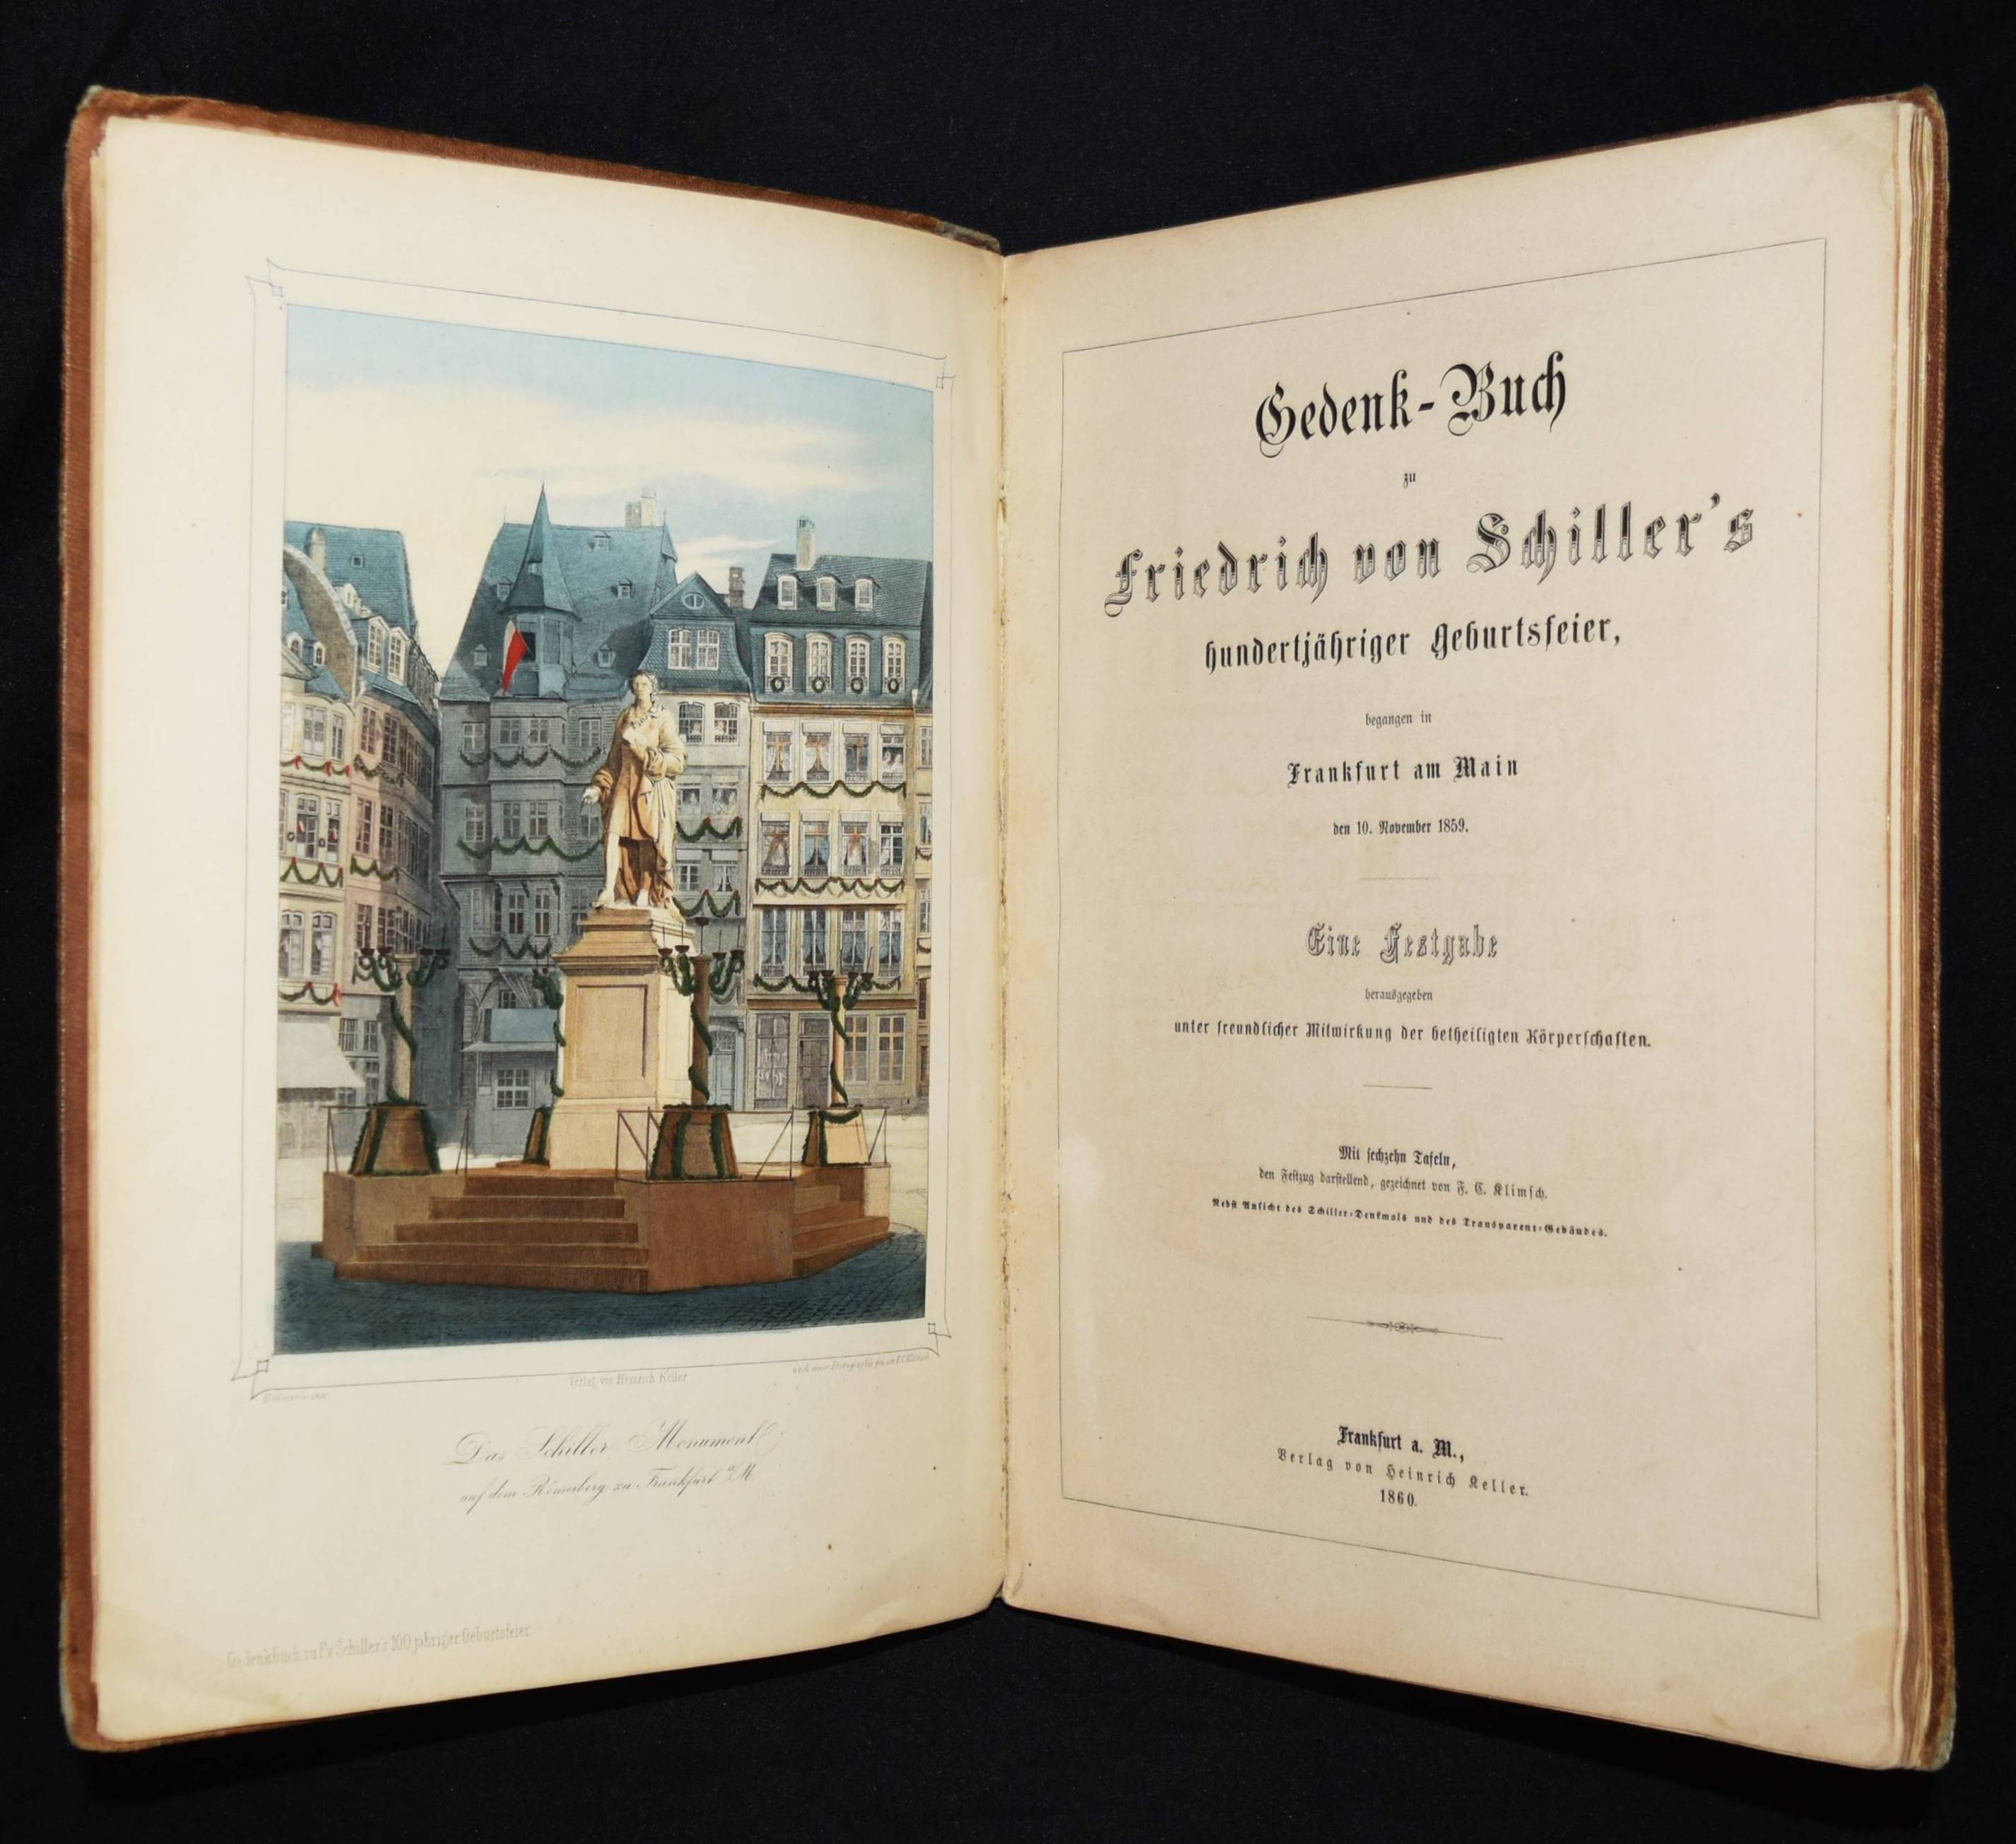 Verlag von Heinrich Keller
Das Schiller Monument
auf dem Römerberg zu Frankfurt a/M
Gedenkbuch zu Fv Schiller's 100 jähriger Geburtsfeier.
Gedenk-Buch
zu
Friedrich von Schiller's
hundertjähriger Geburtsfeier,
begangen in
Frankfurt am Main
den 10. November 1859.
Eine Festgabe
herausgegeben
unter freundlicher Mitwirkung der betheiligten Körperschaften.
Mit sechzehn Tafeln,
den Festzug darstellend, gezeichnet von F. C. Klimsch.
Nebst Ansicht des Schiller-Denkmals und des Transparent-Gebäudes.
Frankfurt a. M.,
Verlag von Heinrich Keller.
1860.